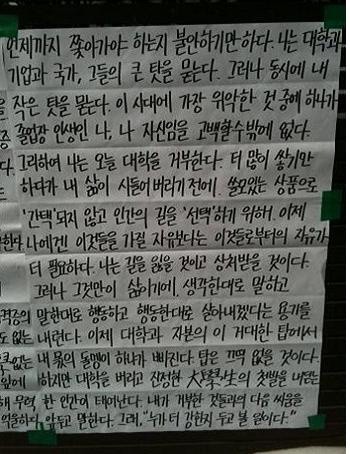 언제까지 쫓아가야 하는지 불안하기만 하다. 나는 대학과
기업과 국가, 그들의 큰 탓을 묻는다. 그러나 동시에 내
을 작은 탓을 묻는다. 이 시대에 가장 위악한 것 중에 하나가
종 졸업장 인생인 나, 나 자신임을 고백할 수밖에 없다.
다. 그리하여 나는 오늘 대학을 거부한다. 더 많이 쌓기만
하다가 내 삶이 시들어버리기 전에. 쓸모있는 상품으로
'간택'되지 않고 인간의 길을 '선택'하기 위해. 이제
한다. 나에겐 이것들을 가질 자유보다는 이것들로부터의 자유가
더 필요하다. 나는 길을 잃을 것이고 상처받을 것이다.
그러나 그것만이 삶이기에, 생각한대로 말하고
격증의 말한대로 행동하고 행동한대로 살아내겠다는 용기를
도 없는 내련다. 이제 대학과 자본의 이 거대한 탑에서
없는 내 몫의 돌멩이 하나가 빠진다. 탑은 끄떡 없을 것이다.
앞에 하지만 대학을 버리고 진정한 大學生의 첫발을 내딛는
해 무력, 한 인간이 태어난다. 내가 거부한 것들과의 다음 싸움을
억울하다. 앞두고 말한다. 그래, "누가 더 강한지 두고 볼 일이다."